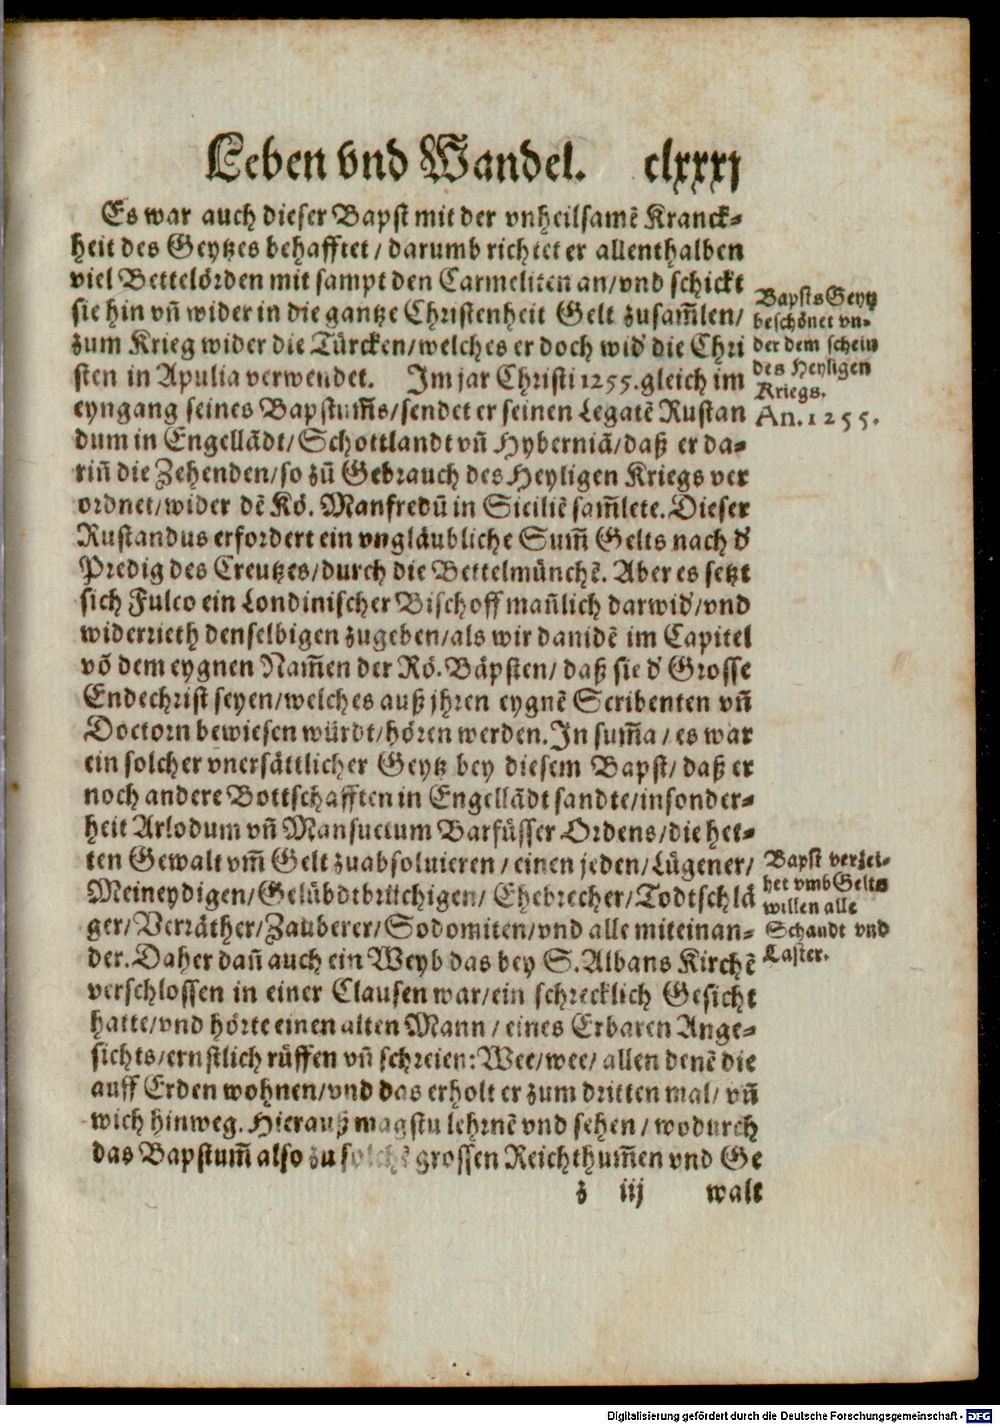 Leben vnd Wandel. clxxxj
Es war auch dieser Bapst mit der vnheilsamẽ Kranck-
heit des Geytzes behafftet/ darumb richtet er allenthalben
viel Bettelörden mit sampt den Carmeliten an/vnd schickt
sie hin vñ wider in die gantze Christenheit Gelt zusam̃len/
zum Krieg wider die Türcken/welches er doch wid' die Chri
sten in Apulia verwendet. Im jar Christi 1255.gleich im
eyngang seines Bapstum̃s/sendet er seinen Legatẽ Rustan
dum in Engellãdt/Schottlandt vñ Hyberniã/daß er da-
riñ die Zehenden/so zũ Gebrauch des Heyligen Kriegs ver
ordnet/wider dẽ Kö. Manfredũ in Siciliẽ sam̃lete. Dieser
Rustandus erfordert ein vngläubliche Sum̃ Gelts nach d'
Predig des Creutzes/durch die Bettelmünchẽ. Aber es setzt
sich Fulco ein Londinischer Bischoff mañlich darwid'/vnd
widerrieth denselbigen zugeben/als wir danidẽ im Capitel
võ dem eygnen Nam̃en der Rö. Bäpsten/ daß sie d' Grosse
Endechrist seyen/welches auß jhren eygnẽ Scribenten vñ
Doctorn bewiesen würdt/hören werden. In sum̃a/ es war
ein solcher vnersättlicher Geytz bey diesem Bapst/ daß er
noch andere Bottschafften in Engellãdt sandte/insonder-
heit Arlodum vñ Mansuetum Barfüsser Ordens/die het-
ten Gewalt vm̃ Gelt zuabsoluieren/einen jeden/Lügener/
Meineydigen/Gelübdtbrüchigen/ Ehebrecher/Todtschlä
ger/Verräther/Zauberer/Sodomiten/vnd alle miteinan-
der. Daher dañ auch ein Weyb das bey S. Albans Kirchẽ
verschlossen in einer Clausen war/ein schrecklich Gesicht
hatte/vnd hörte einen alten Mann/eines Erbaren Ange-
sichts/ernstlich rüffen vñ schreien: Wee/wee/ allen denẽ die
auff Erden wohnen/vnd das erholt er zum dritten mal/ vñ
wich hinweg. Hierauß magstu lehrnẽ vnd sehen/ wodurch
das Bapstum̃ also zu solchẽ grossen Reichthum̃en vnd Ge
z iij walt
Bapsts Geytz
beschönet vn-
der dem schein
des Heyligen
Kriegs.
An. 1255.
Bapst verzei-
het vmb Gelts
willen alle
Schandt vnd
Laster.
Digitalisierung gefördert durch die Deutsche Forschungsgemeinschaft - DFG